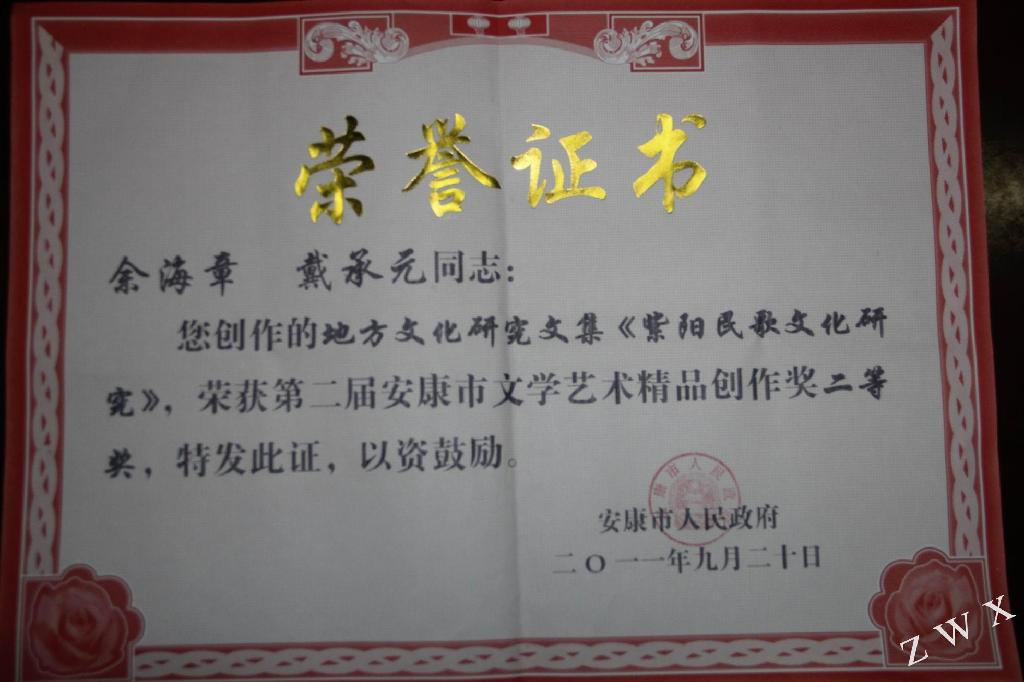 荣誉证书
余海章 戴承元同志：
您创作的地方文化研究文集《紫阳民歌文化研
究》，荣获第二届安康市文学艺术精品创作奖二等
奖，特发此证，以资鼓励。
安康市人民政府
二〇一一年九月二十日
ZWX